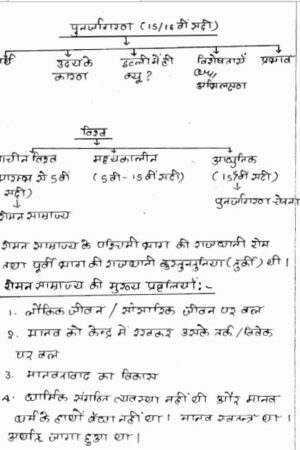 पुनर्जागरण (15/16 वीं सदी)
उदय के इटली में ही विशेषताएँ प्रभाव
कारण क्यू ?
अभिलक्षण
विश्व
प्राचीन विश्व मध्यकालीन आधुनिक
प्रारम्भ से 5वीं (5वीं - 15वीं सदी) (15वीं सदी)
सदी) पुनर्जागरण
रोमन साम्राज्य
रोमन साम्राज्य के पश्चिमी भाग की राजधानी रोम
तथा पूर्वी भाग की राजधानी कुस्तुनतुनिया (तुर्की) थी।
रोमन साम्राज्य की मुख्य प्रवृत्तियाँ :-
1. लौकिक जीवन / सांसारिक जीवन पर बल
2. मानव को केन्द्र में रखकर उसके तर्क / विवेक
पर बल
3. मानवतावाद का विकास
4. धार्मिक संगठित व्यवस्था नहीं थी और मानव
धर्म के हाथों बँधा नहीं था। मानव स्वतन्त्र था।
अर्थात् जागा हुआ था।